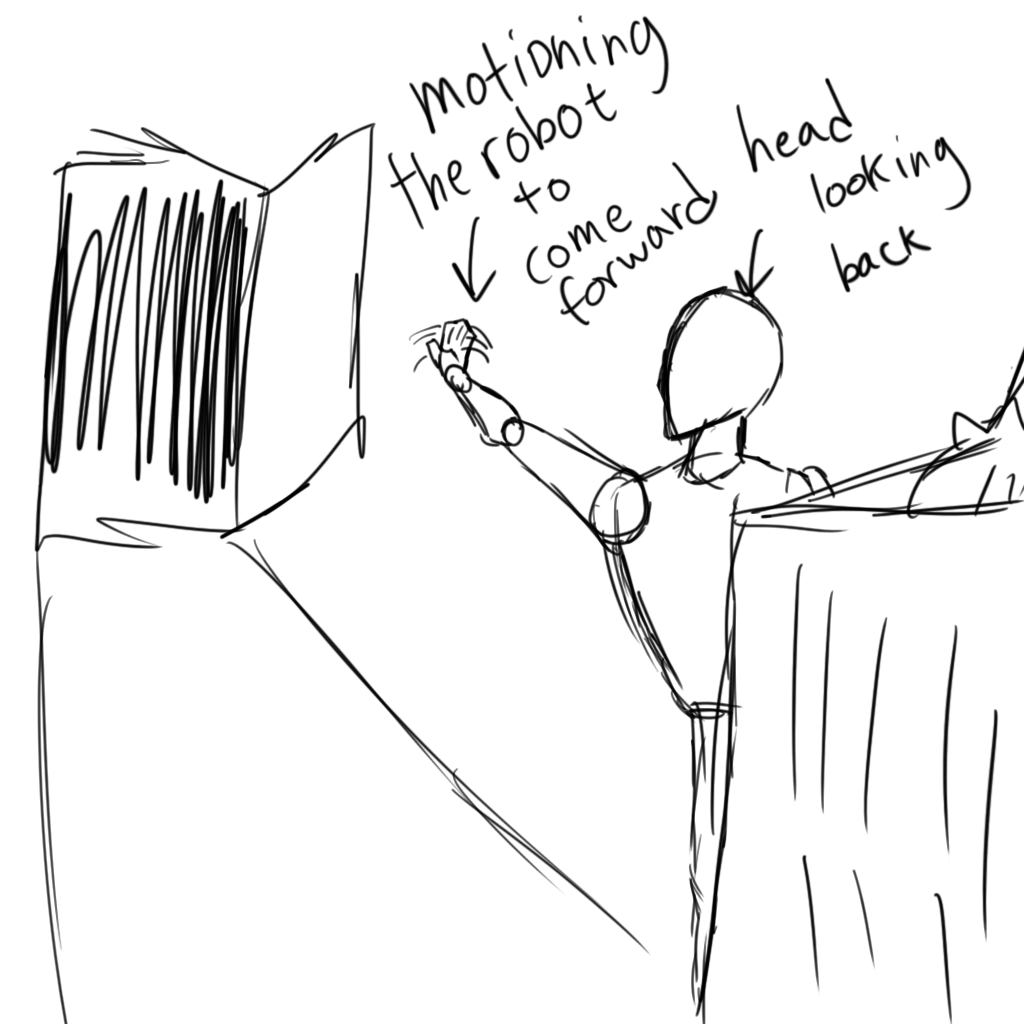 motioning
the robot
to
come
forward
head
looking
back